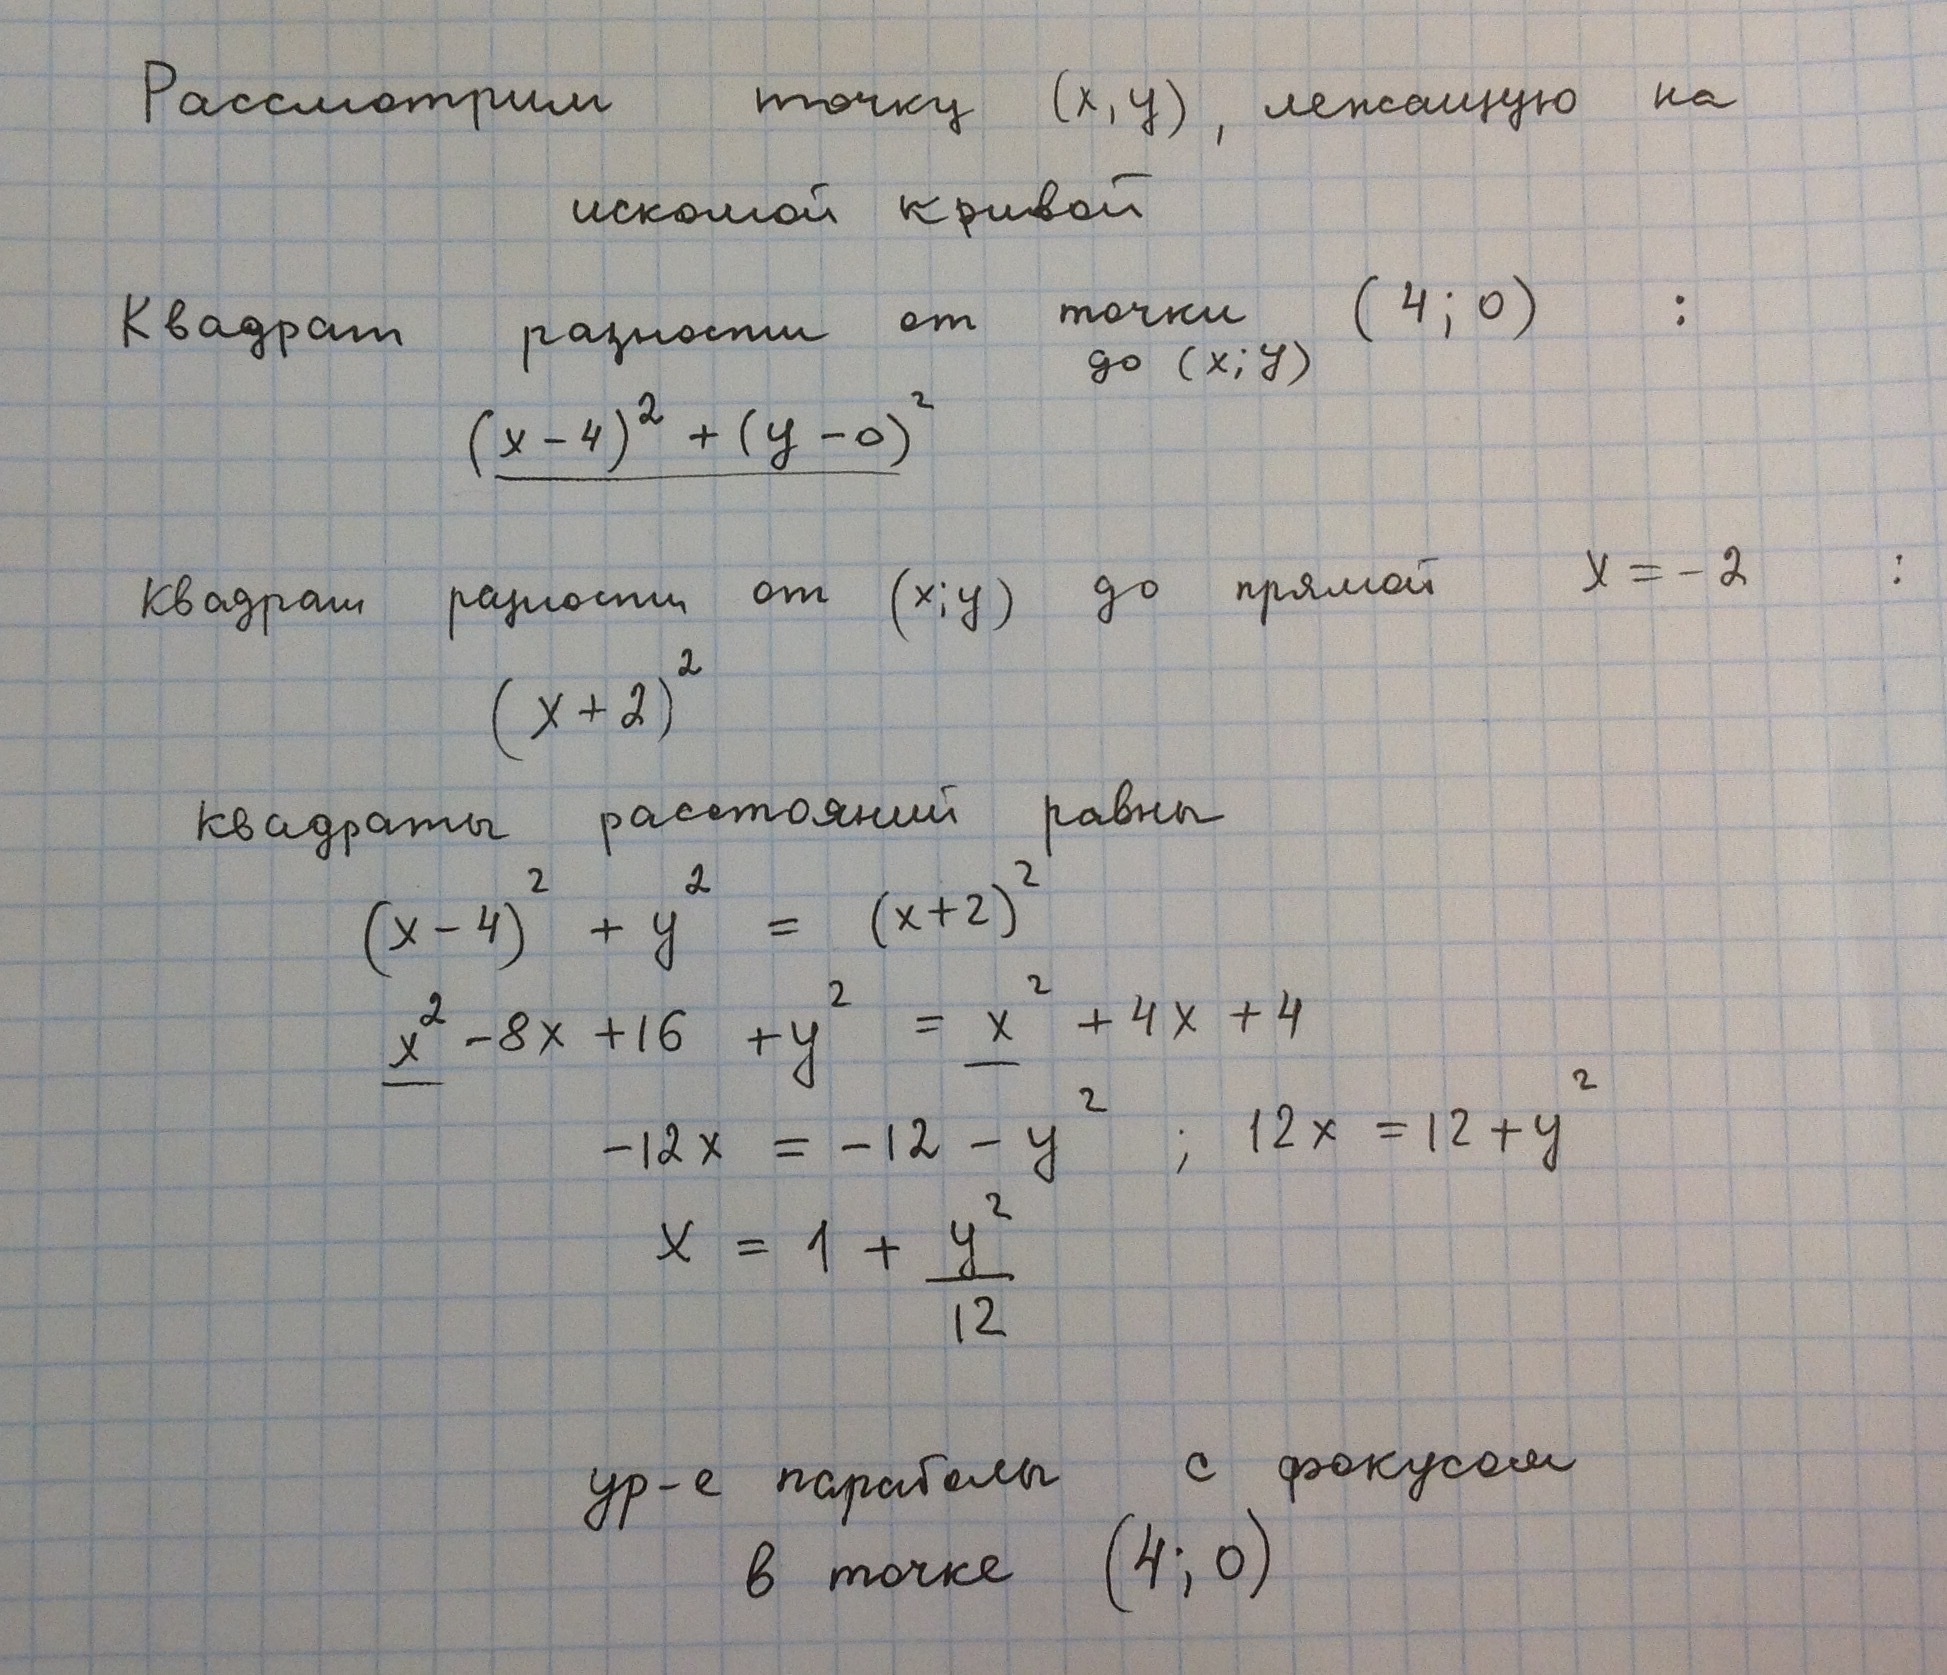 Рассмотрим точку (x, y), лежащую на
искомой кривой
Квадрат разности от точки (4; 0) :
до (x; y)
(x - 4)² + (y - 0)²
Квадрат разности от (x; y) до прямой x = -2 :
(x + 2)²
Квадраты расстояний равны
(x - 4)² + y² = (x + 2)²
x² - 8x + 16 + y² = x² + 4x + 4
-12x = -12 - y² ; 12x = 12 + y²
x = 1 + y²/12
ур-е параболы с фокусом
в точке (4; 0)